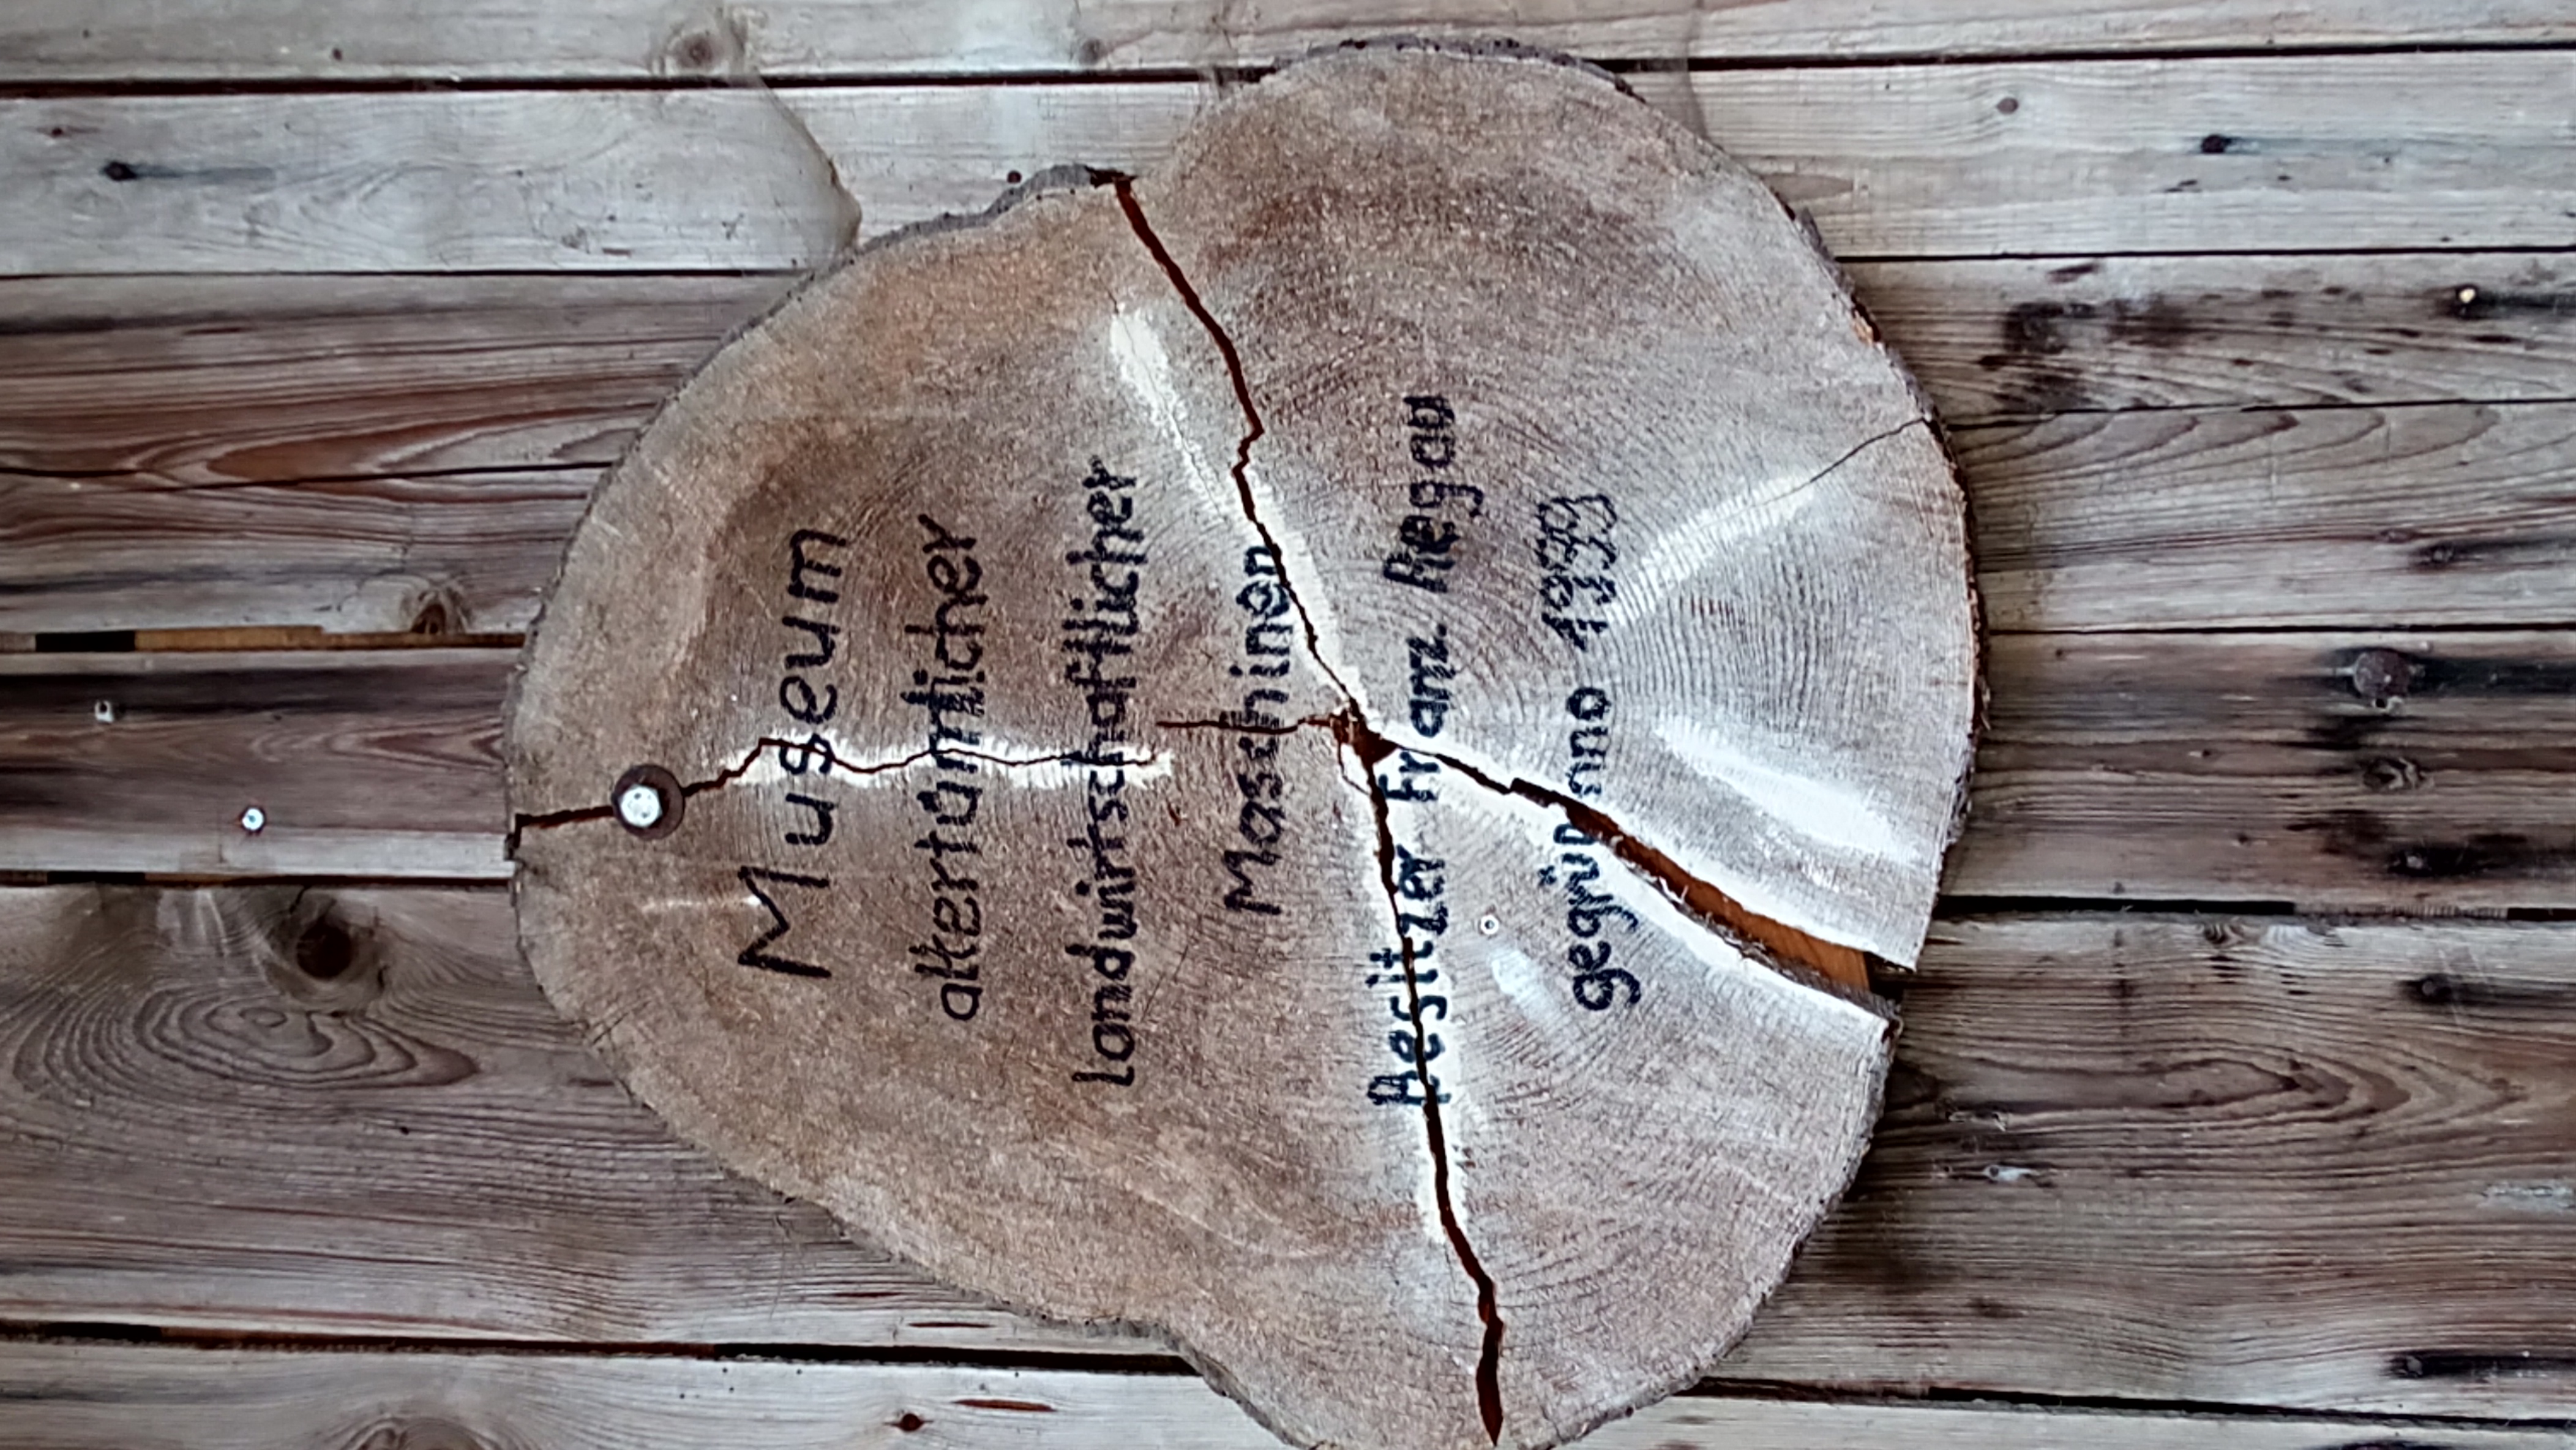 Museum
alkertümlicher
landwirtschaftlicher
Maschinen
Besitzer Franz Regau
gegründ anno